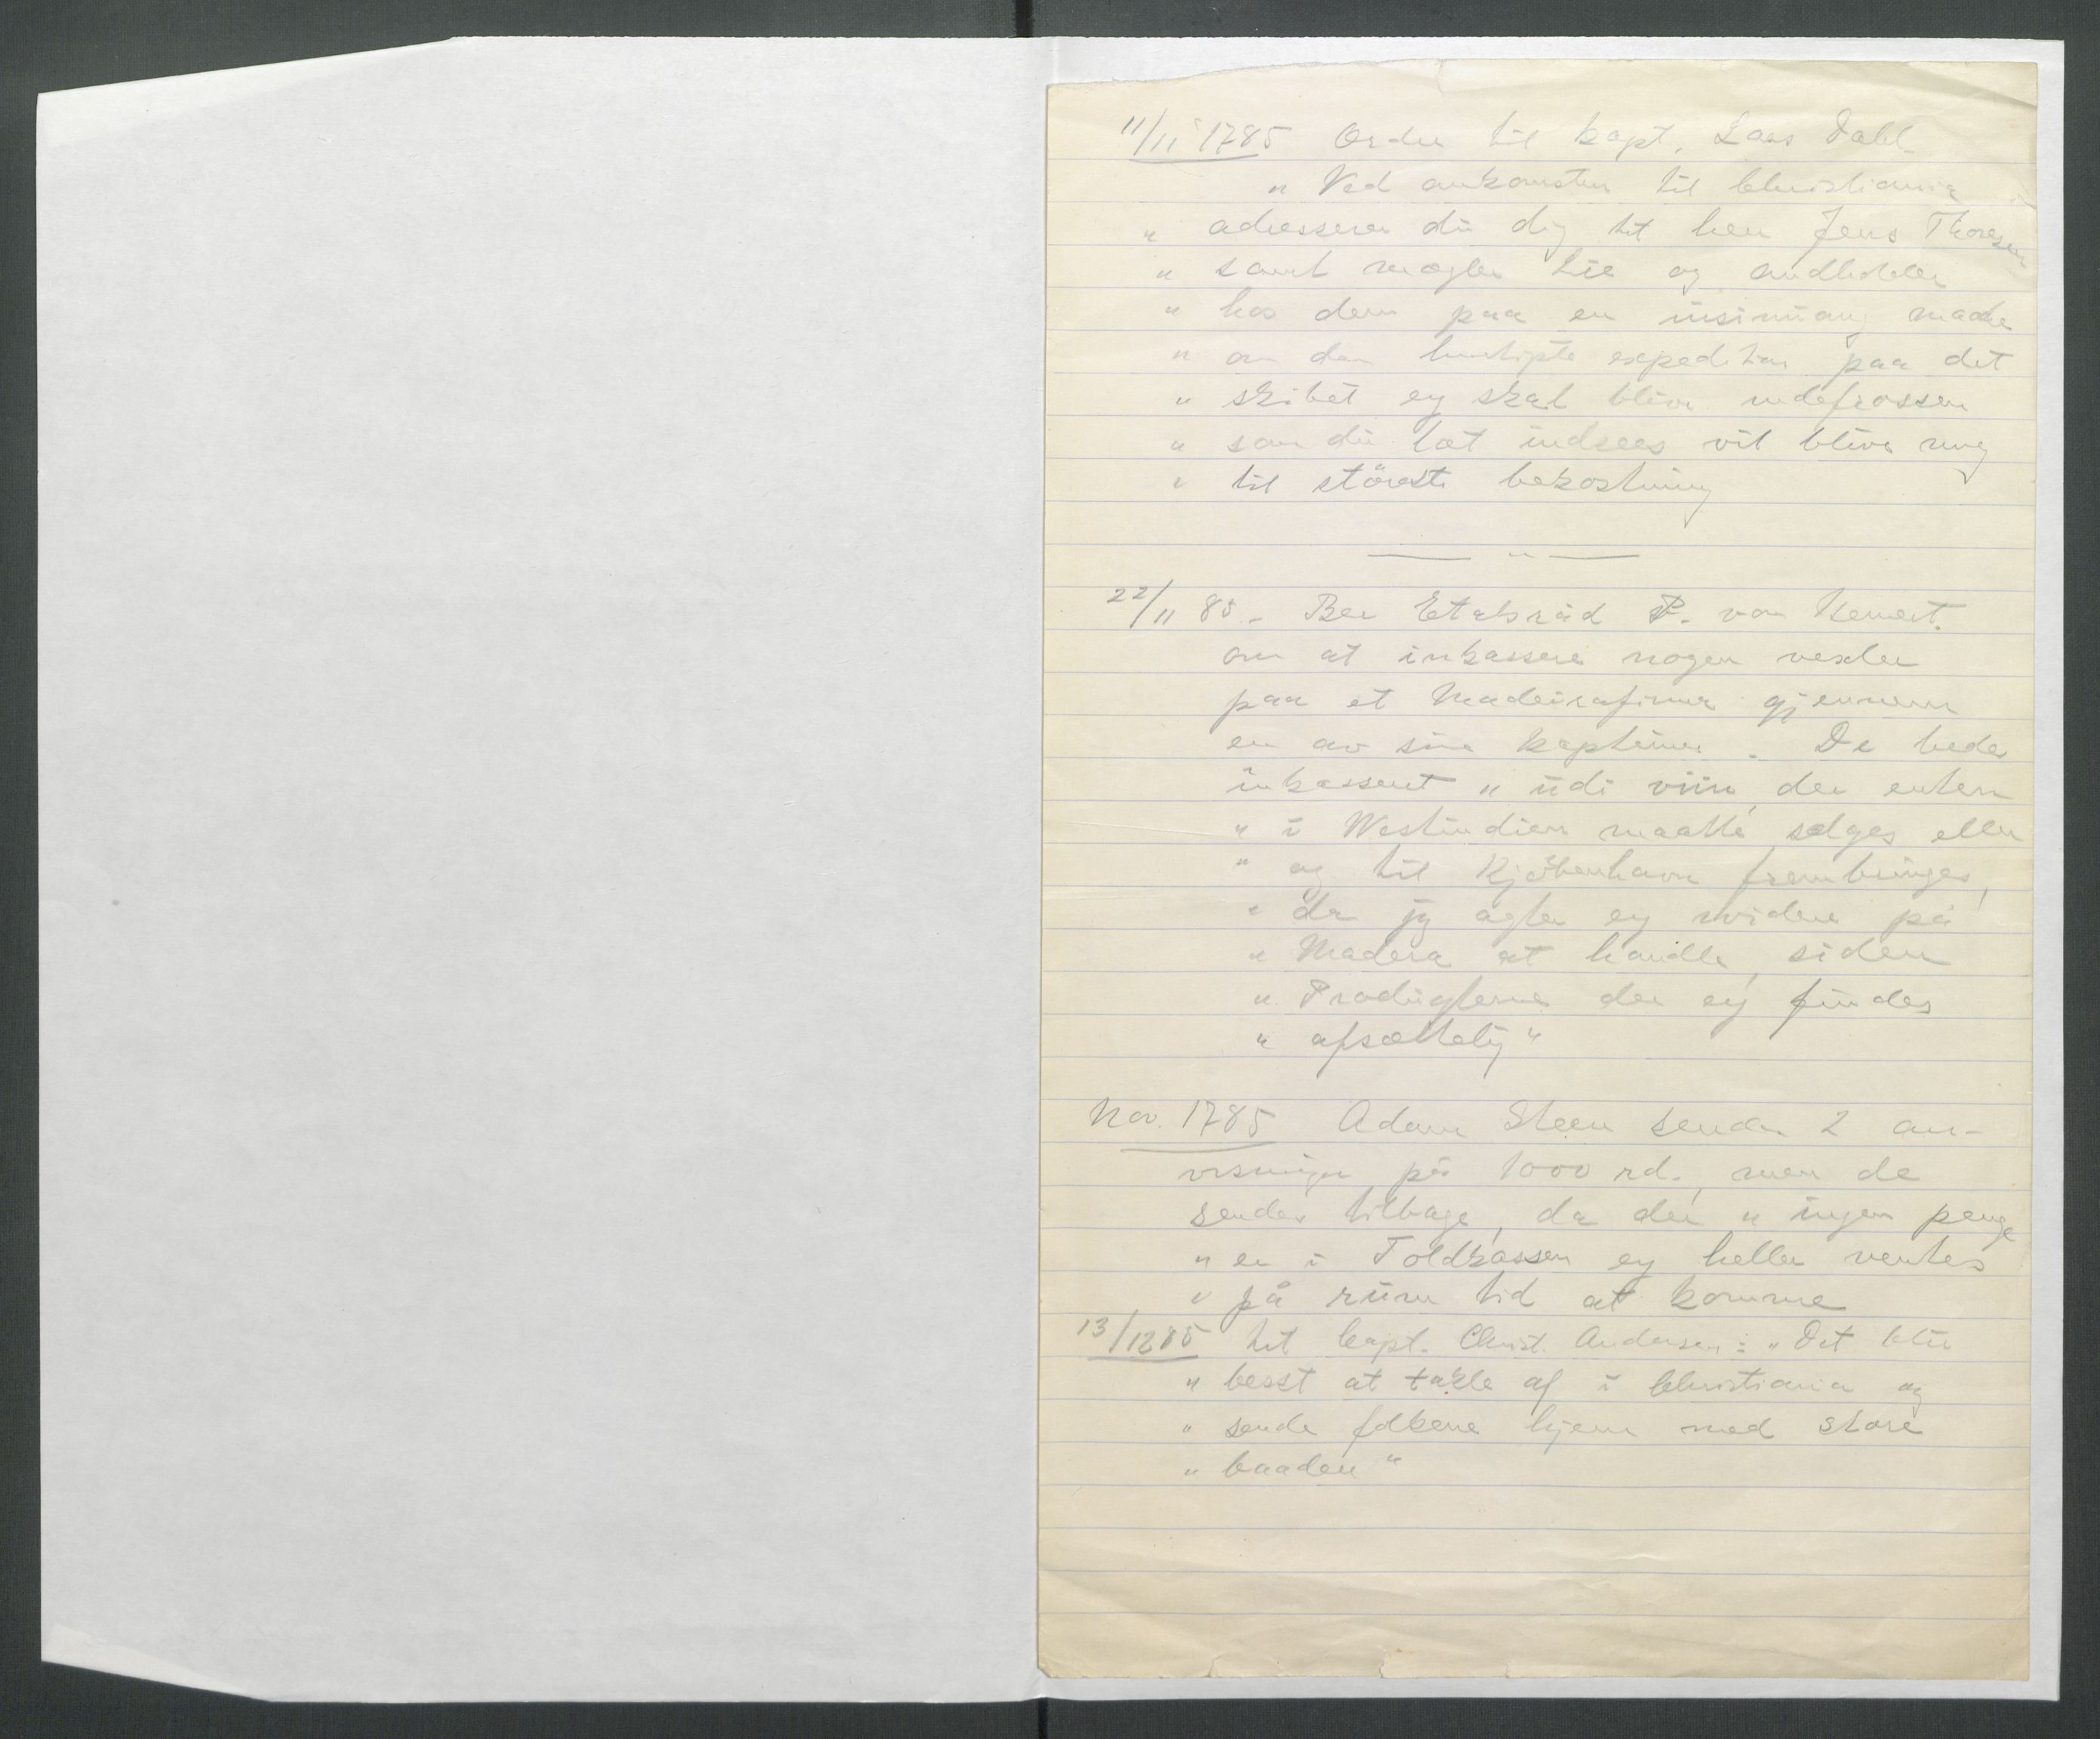 11/11 1785 Ordre til kapt. Lars Dahl
" Ved ankomsten til Christiania
" adresserer dü dig til herr Jens Thoresen
" samt mægler Lie og anholder
" hos dem paa en insinüang maade
" om den hurtigste expedition paa det
" skibet ey skal blive indefrossen
" som dü let indsees vil blive mig
" til störeste bekostning
— " —
22/11 85 - Ber Etatsråd P. von
om at inkassere nogen vexler
paa et Madeirafirma gjennem
en av sine kapteiner. De bedes
inkassert " üdi viin, der enten
" i Westindien maatte sælges eller
" og til Kjöbenhavn frembringes,
" da jeg agter ey videre på
" Madera at handle, siden
" Prodügterne der ey findes
" afsættelig "
Nov. 1785 Adam Steen sender 2 an-
visninger på 1000 rd., men de
sendes tilbage, da der " ingen penge
" er i Toldkassen ey heller ventes
" på rüm tid at komme
13/12 85 til kapt. Christ. Andersen: " Det blir
" besst at takle af i Christiania og
" sende folkene hjem med store
" baaden "